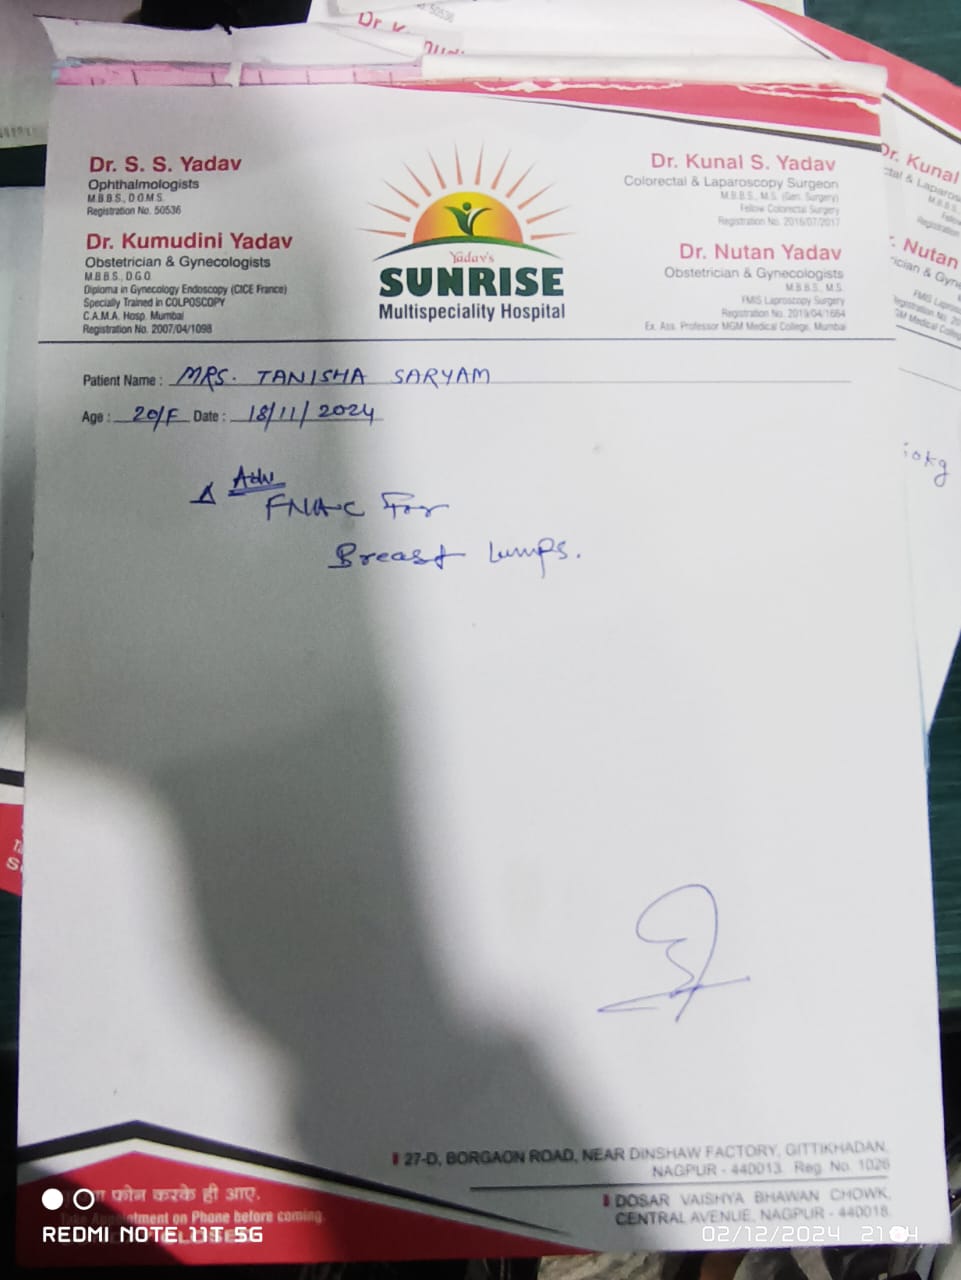 Dr. S. S. Yadav
Ophthalmologists
M.B.B.S., D.O.M.S.
Registration No. 50536
Dr. Kumudini Yadav
Obstetrician & Gynecologists
M.B.B.S., D.G.O.
Diploma in Gynecology Endoscopy (CICE France)
Specially Trained in COLPOSCOPY
C.A.M.A. Hosp. Mumbai
Registration No. 2007/04/1098
Yadav's
SUNRISE
Multispeciality Hospital
Dr. Kunal S. Yadav
Colorectal & Laparoscopy Surgeon
M.B.B.S., M.S. (Gen. Surgery)
Fellow Colorectal Surgery
Registration No. 2016/07/2017
Dr. Nutan Yadav
Obstetrician & Gynecologists
M.B.B.S., M.S.
FMIS Laproscopy Surgery
Registration No. 2019/04/1664
Ex. Ass. Professor MGM Medical College, Mumbai
Patient Name : MRS. TANISHA SARYAM
Age : 20/F Date : 18/11/2024
Adv
FNAC For
Breast Lumps.
27-D, BORGAON ROAD, NEAR DINSHAW FACTORY, GITTIKHADAN,
NAGPUR - 440013. Reg. No. 1026
DOSAR VAISHYA BHAWAN CHOWK,
CENTRAL AVENUE, NAGPUR - 440018.
फोन करके ही आए.
Take Appointment on Phone before coming.
REDMI NOTE 11T 5G
02/12/2024
50536
Dr. Kunal
Nutan
10kg